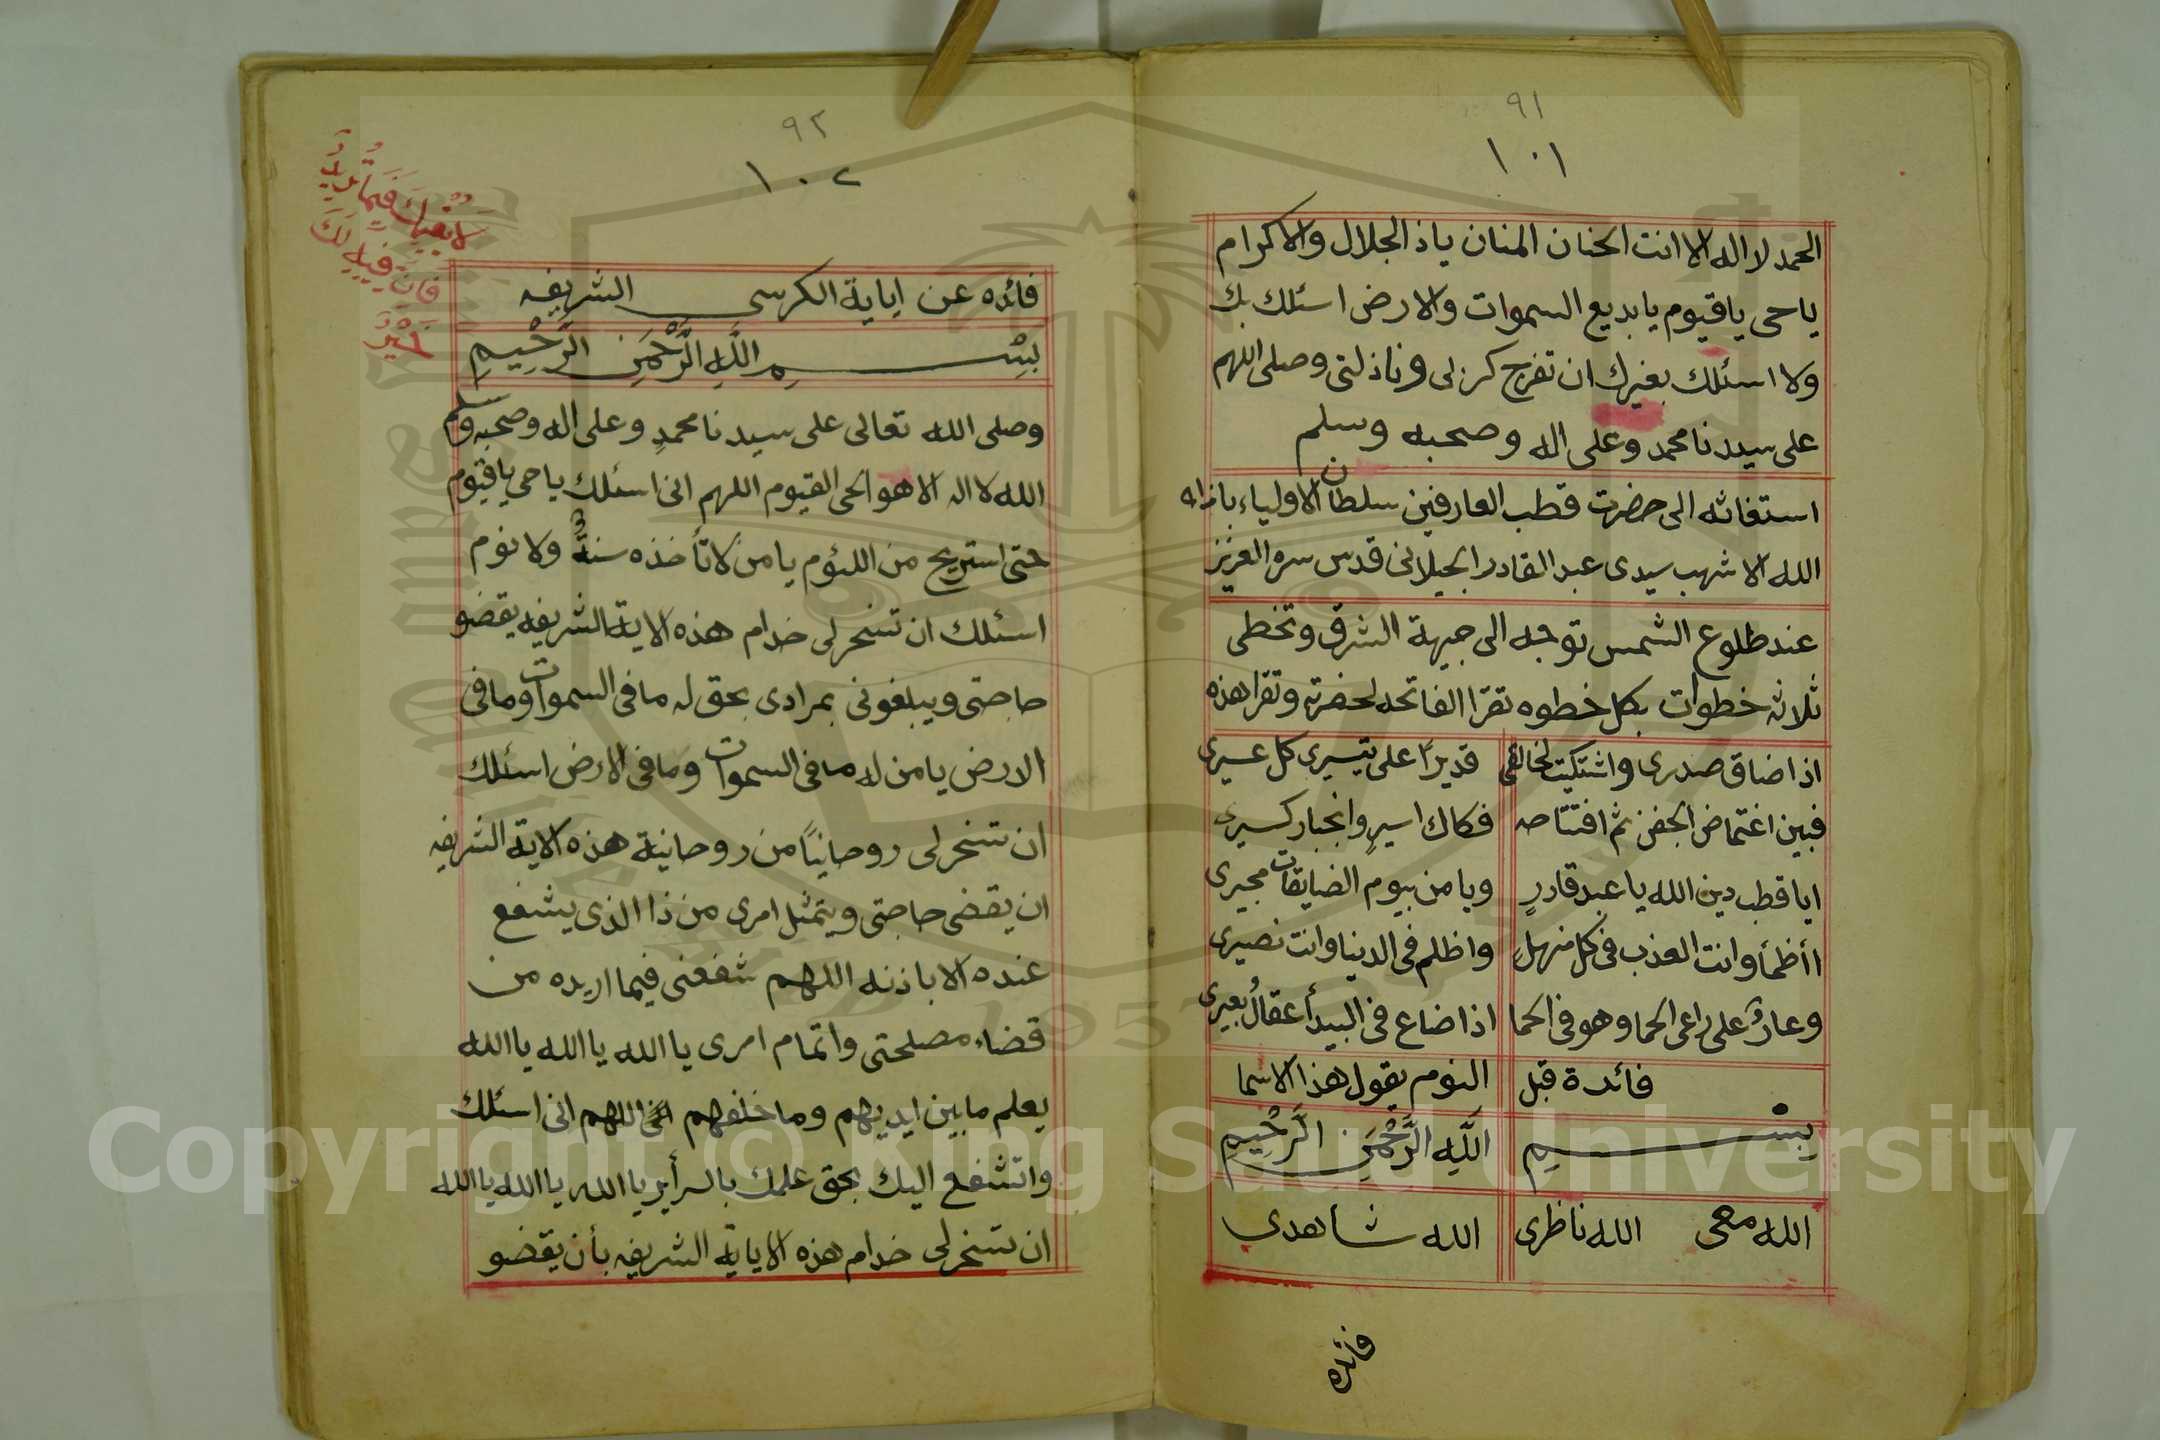 ٩١
١٠١
الحمد لا اله الا انت الحنان المنان ياذ الجلال والاكرام
ياحى ياقيوم يابديع السموات والارض اسئلك بك
ولا اسئلك بغيرك ان تفرج كزلى وناذلتى وصلى اللهم
على سيدنا محمد وعلى اله وصحبه وسلم
استغاثه الى حضرت قطب العارفين سلطان الاولياء باذاه
الله الاشهب سيدى عبد القادر الجيلانى قدس سره العزيز
عند طلوع الشمس توجه الى جيهة الشرق وتخطى
ثلاثه خطوات بكل خطوه تقرا الفاتحه لحضرته وتقرا هذه
اذا ضاق صدرى واشتكيت لخالقى قديرًا على تيسيرى كل عسيرى
فبين اغتماض الجفن ثم افتتاحه فكاك اسيرٍ وانجبار كسيرى
ايا قطب دين الله يا عبد قادرٍ ويا من بيوم الضايقات مجيرى
اأظمأ وانت العذب فى كل منهل واظلم فى الدنيا وانت نصيرى
وعارٌ على راعى الحما وهو فى الحما اذا ضاع فى البيدأ عقالُ بعيرى
فائدة قبل النوم يقول هذا الاسما
بسم الله الرَّحْمَنِ الرَّحِيمِ
الله معى الله ناظرى الله شاهدى
فائده
٩٢
١٠٢
لا نفياك فيَمَا تُريدُ
فان فيه لَكَ
خَيْرً
فائده عن اياية الكرسى الشريفه
بِسْمِ اللَّهِ الرَّحْمَنِ الرَّحِيمِ
وصلى الله تعالى على سيدنا محمدٍ وعلى اله وصحبه وسلم
الله لا اله الا هو الحى القيوم اللهم انى اسئلك ياحى ياقيوم
حتى استريح من اللئوم يا من لا تأخذه سنةٌ ولا نوم
اسئلك ان تسخر لى خدام هذه الاية الشريفه يقضو
حاجتى ويبلغونى بمرادى بحق له ما فى السموات وما فى
الارض يا من له ما فى السموات وما فى الارض اسئلك
ان تسخر لى روحانيًا من روحانية هذه الاية الشريفه
ان يقضى حاجتى ويتمثل امرى من ذا الذى يشفع
عنده الا باذنه اللهم شفعنى فيما اريده من
قضاء مصلحتى واتمام امرى يا الله يا الله يا الله
يعلم ما بين ايديهم وما خلفهم اللهم انى اسئلك
واتشفع اليك بحق علمك بالسرأير يا الله يا الله يا الله
ان تسخر لى خدام هذه الاياية الشريفه بأن يقضو
Copyright © King Saud University
1957